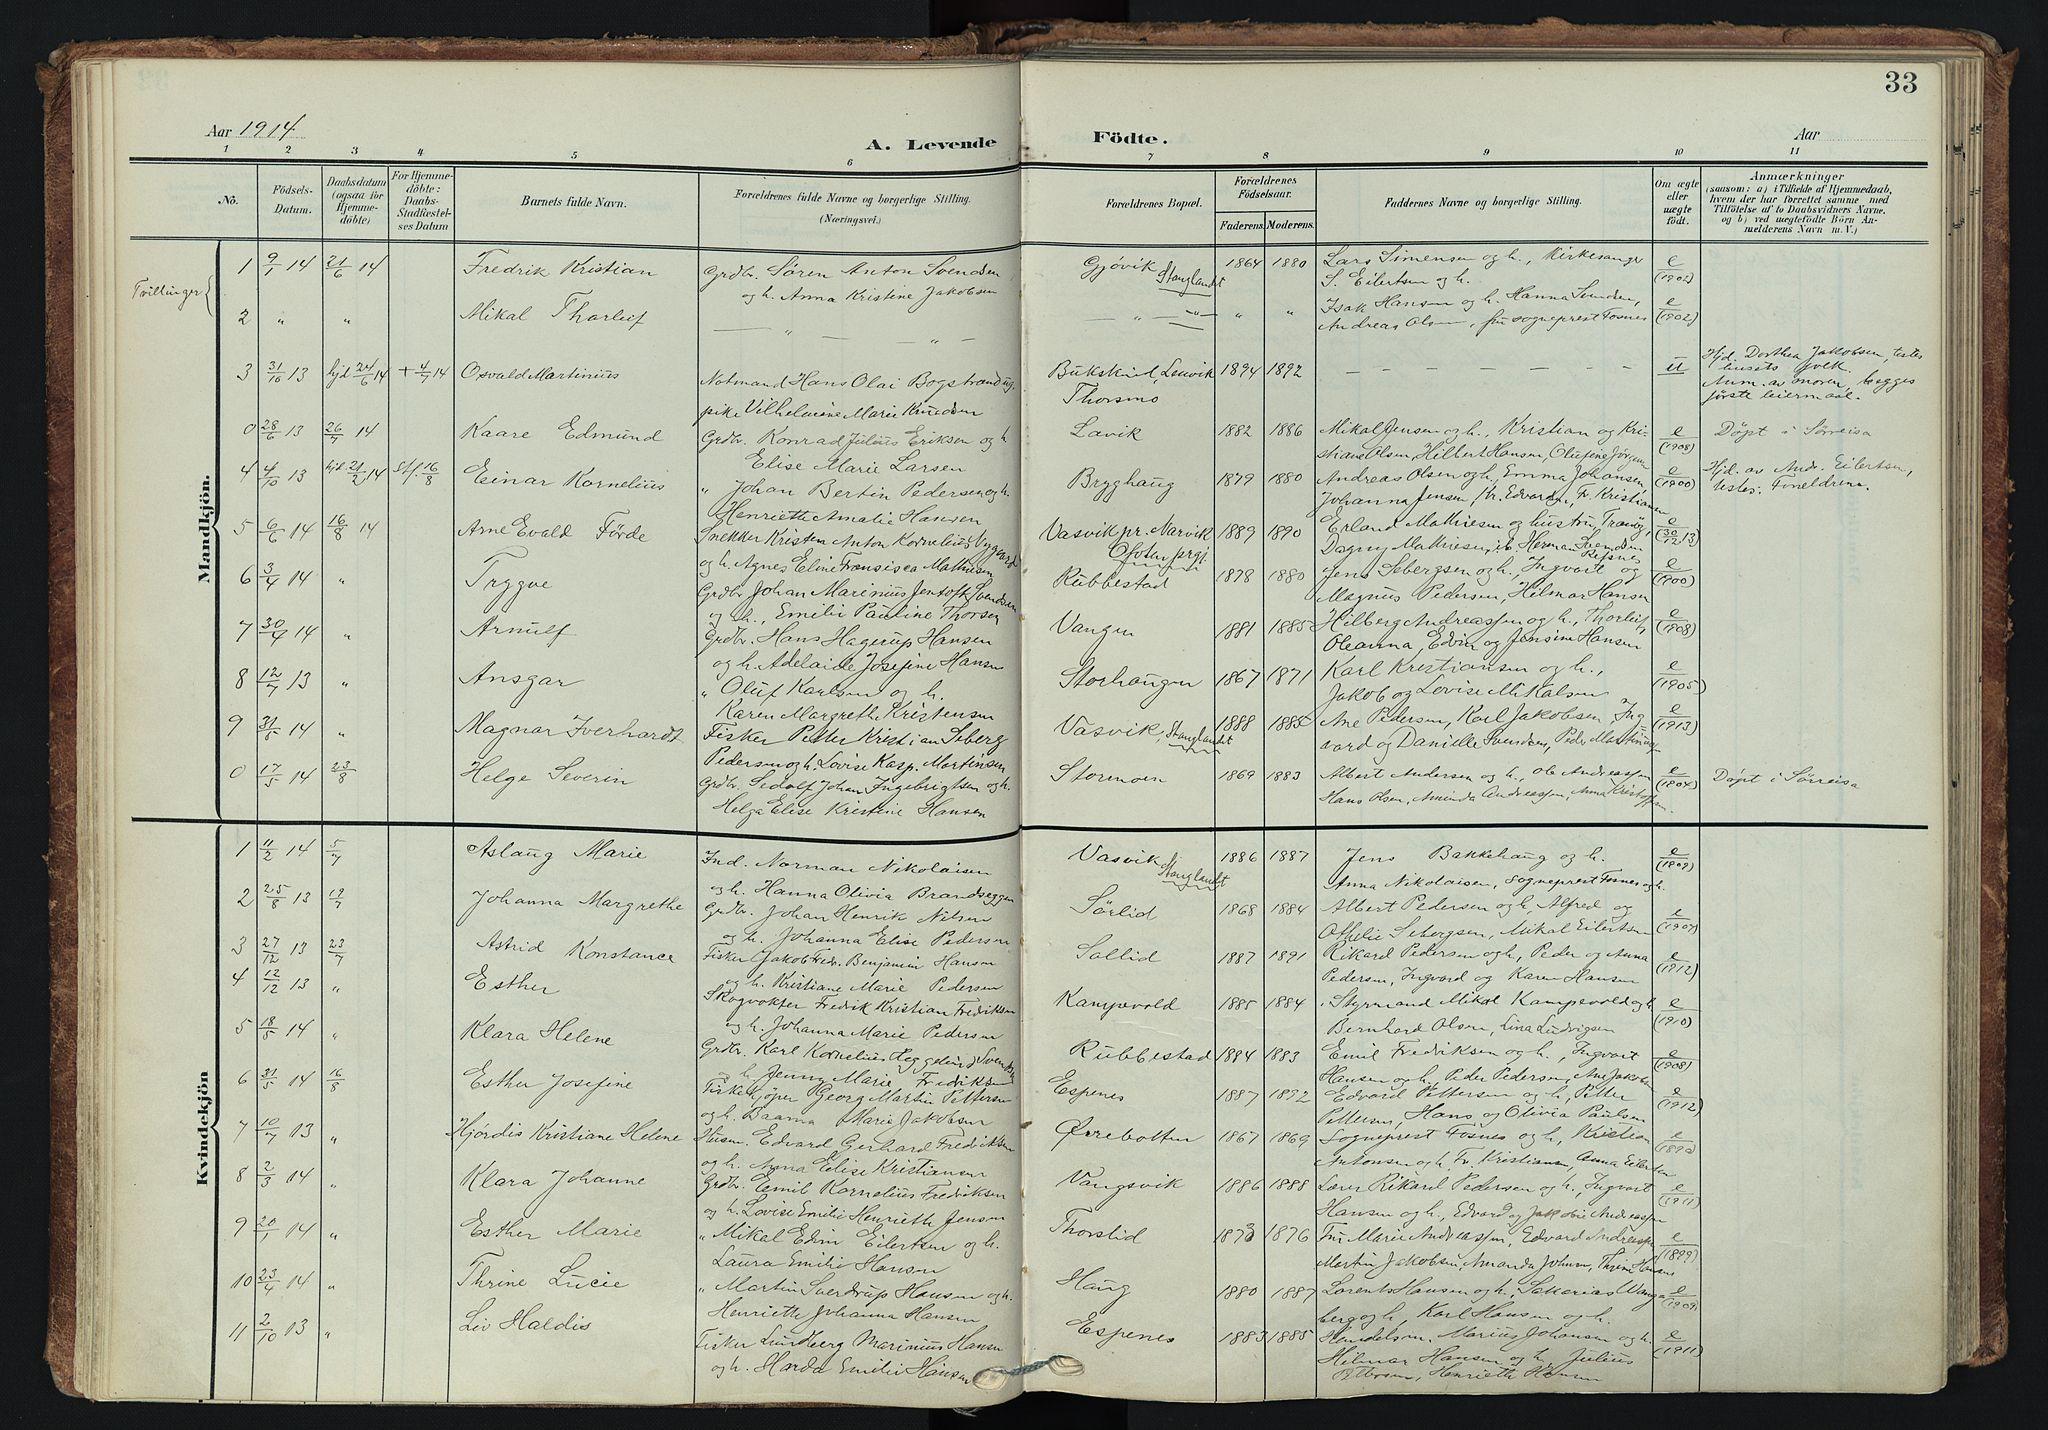 33
Aar 1914
A. Levende
Födte.
Aar
1 2 3 4 5 6 7 8 9 10 11
No.
Födsels-Datum.
Daabsdatum (ogsaa for Hjemme-döbte)
For Hjemme-döbte: Daabs-Stadfæstel-ses Datum
Barnets fulde Navn.
Forældrenes fulde Navne og borgerlige Stilling. (Næringsvei.)
Forældrenes Bopæl.
Forældrenes Födselsaar.
Faderens. Moderens.
Faddernes Navne og borgerlige Stilling.
Om ægte eller uægte födt.
Anmærkninger
(saasom: a) i Tilfælde af Hjemmedaab,
hvem der har forrettet samme med
Tilföielse af to Daabsvidners Navne,
og b) ved uægtefödte Börn An-
melderens Navn m. V.)
Mandkjön.
Tvillinger
1 9/1 14 21/6 14 Fredrik Kristian Grdbr. Søren Anton Svendsen Gjøvik 1864 1880 Lars Simensen og h., Kirkesanger e
og h. Anna Kristine Jakobsen Stanglandet S. Eilertsen og h. (1902)
2 " " Mikal Thorleif — " — " " Isak Hansen og h. Hanna Svendsen, e
Andreas Olsen, fru sogneprest Fosnes (1902)
3 31/10 13 hjd 24/6 14 + 4/7 14 Osvald Martinius Notmand Hans Olai Bogstrand og Bukskind, Lenvik 1894 1892 — — — u Hjd. Dorthea Jakobsen, testes
husets folk.
pike Vilhelmine Marie Knudsen Thorsmo Anm. av moren, begges
første leiermaal.
0 28/6 13 26/7 14 Kaare Edmund Grdbr. Konrad Julius Eriksen og h. Lavik 1882 1886 Mikal Jensen og h., Kristian og Kri- e Døpt i Sørreisa
Elise Marie Larsen stians Olsen, Hilbert Hansen, Olufine Jørgensen (1908)
4 4/10 13 hjd 21/2 14 stf. 16/8 Einar Kornelius " Johan Bertin Pedersen og h. Bryghaug 1879 1880 Andreas Olsen og h., Emma Johansen, e Hjd. av Andr. Eilertsen,
Henriette Amalie Hansen Johanna Jensen, Kr. Edvardsen, Fr. Kristiansen (1900) testes: Foreldrene.
5 6/6 14 16/8 14 Arne Evald Förde Snekker Kristen Anton Kornelius Vygaard Vasvik pr. Narvik 1889 1890 Erland Mathisen og hustru, Tranøy, e
og h. Agnes Eline Fransisca Mathisen Ofoten prgj. Dagny Mathiesen, Herman Svendsen (30/12 13)
6 3/4 14 " Trygve Grdbr. Johan Marinius Jentoft Svendsen Rubbestad 1878 1880 Jens Sebergsen og h., Ingvart og e
og h., Emilie Pauline Thorsen Magnus Pedersen, Hilmar Hansen (1900)
7 30/4 14 " Arnulf Grdbr. Hans Hagerup Hansen Vangen 1881 1885 Hilberg Andreassen og h., Thorleif, e
og h. Adelaide Josefine Hansen Oleanna, Edvin og Jensine Hansen (1908)
8 12/7 13 " Ansgar " Oluf Karlsen og h. Storhaugen 1867 1871 Karl Kristiansen og h., e
Karen Margrethe Kristensen Jakob og Lovise Mikalsen (1905)
9 31/5 14 " Magnar Iverhardt Fisker Petter Kristian Seberg Vasvik, Stanglandet 1888 1885 Ane Pedersen, Karl Jakobsen, Ing- e
Pedersen og h. Lovise Kasp. Martinsen vard og Danielle Svendsen, Peder Martinsen (1913)
0 17/5 14 23/8 Helge Severin Grdbr. Sedolf Johan Ingebrigtsen og h. Stormoen 1869 1883 Albert Andersen og h., Ole Andreassen e Døpt i Sørreisa
Helga Elise Kristine Hansen Hans Olsen, Aminda Andreassen, Anna Kristoffersen (1904)
Kvindekjön
1 11/2 14 5/7 Aslaug Marie Ind. Norman Nikolaisen Vasvik 1886 1887 Jens Bakkehaug og h. e
og h. Hanna Olivia Brandseggen Stanglandet Anna Nikolaisen, sogneprest Fosnes og h. (1909)
2 25/8 13 19/7 Johanna Margrethe Grdbr. Johan Henrik Nilsen Sørlid 1868 1884 Albert Pedersen og h., Alfred og e
og h. Johanna Elise Pedersen Othelie Sebergsen, Mikal Eilertsen (1907)
3 27/12 13 23/7 Astrid Konstance Fisker Jakob Fredr. Benjamin Hansen Sollid 1887 1891 Rikard Pedersen og h., Peder og Anna e
og h. Kristiane Marie Pedersen Pedersen, Ingvard og Karen Hansen (1912)
4 12/12 13 " Esther Skogvokter Fredrik Kristian Fredriksen Kampevold 1885 1884 Styrmand Mikal Kampevold og h. e
og h. Johanna Marie Pedersen Bernhard Olsen, Lina Ludvigsen (1910)
5 18/5 14 " Klara Helene Grdbr. Karl Kornelius Heggelund Svendsen Rubbestad 1884 1883 Emil Fredriksen og h., Ingvart e
og h. Jenny Marie Fredriksen Hansen og h., Peder Pedersen, Ane Jakobsen (1908)
6 31/5 14 16/8 Esther Josefine Fiskekjøper Georg Martin Pettersen Espenes 1887 1892 Edvard Pettersen og h., Petter e
og h. Marie Jakobsen Pettersen, Hans og Olivia Paulsen (1912)
7 10/7 13 " Hjördis Kristiane Helene Husm. Edvard Gerhard Fredriksen Øvrebotten 1867 1869 Sogneprest Fosnes og h., Kristian e
og h. Anna Elise Kristiansen Antonsen og h., Fr. Kristiansen, Anna Eilertsen
8 2/3 14 " Klara Johanne Grdbr. Emil Kornelius Fredriksen Vangsvik 1886 1888 Lærer Rikard Pedersen og h., Ingvart e
og h. Lovise Emilie Henriette Jensen Hansen og h., Edvard og Jakobie Andreassen (1911)
9 20/1 14 " Esther Marie " Mikal Edvin Eilertsen og h. Thorslid 1873 1876 Fru Marie Andreassen, Edvard Andreassen e
Laura Emilie Hansen Martin Jakobsen, Amanda Johnsen, Thrine Hansen (1899)
10 23/4 14 " Thrine Lucie " Martin Sverdrup Hansen og h. Haug 1880 1887 Lorents Hansen og h., Sakarias Vange- e
Henriette Johanna Hansen berg og h., Karl Hansen og h. (1909)
11 2/10 13 " Liv Haldis Fisker Lundberg Marinius Hansen Espenes 1883 1885 Handelsm. Marius Johansen og h. e
og h. Harda Emilie Hansen Hilmar Hansen og h., Julius (1911)
Pettersen, Henriette Hansen